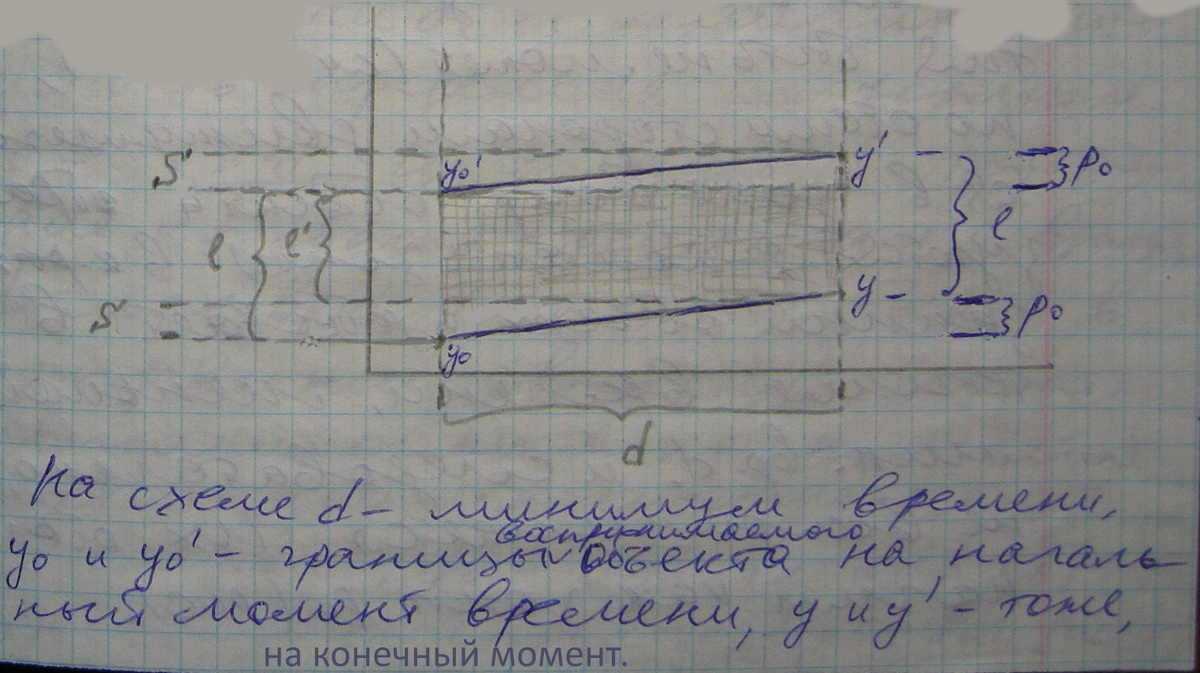 S'
y₀'
y'
p₀
l
l'
l
S
y
p₀
y₀
d
На схеме d – минимум времени,
воспринимаемого
y₀ и y₀' – границы объекта на началь-
ный момент времени, y и y' – тоже,
на конечный момент.